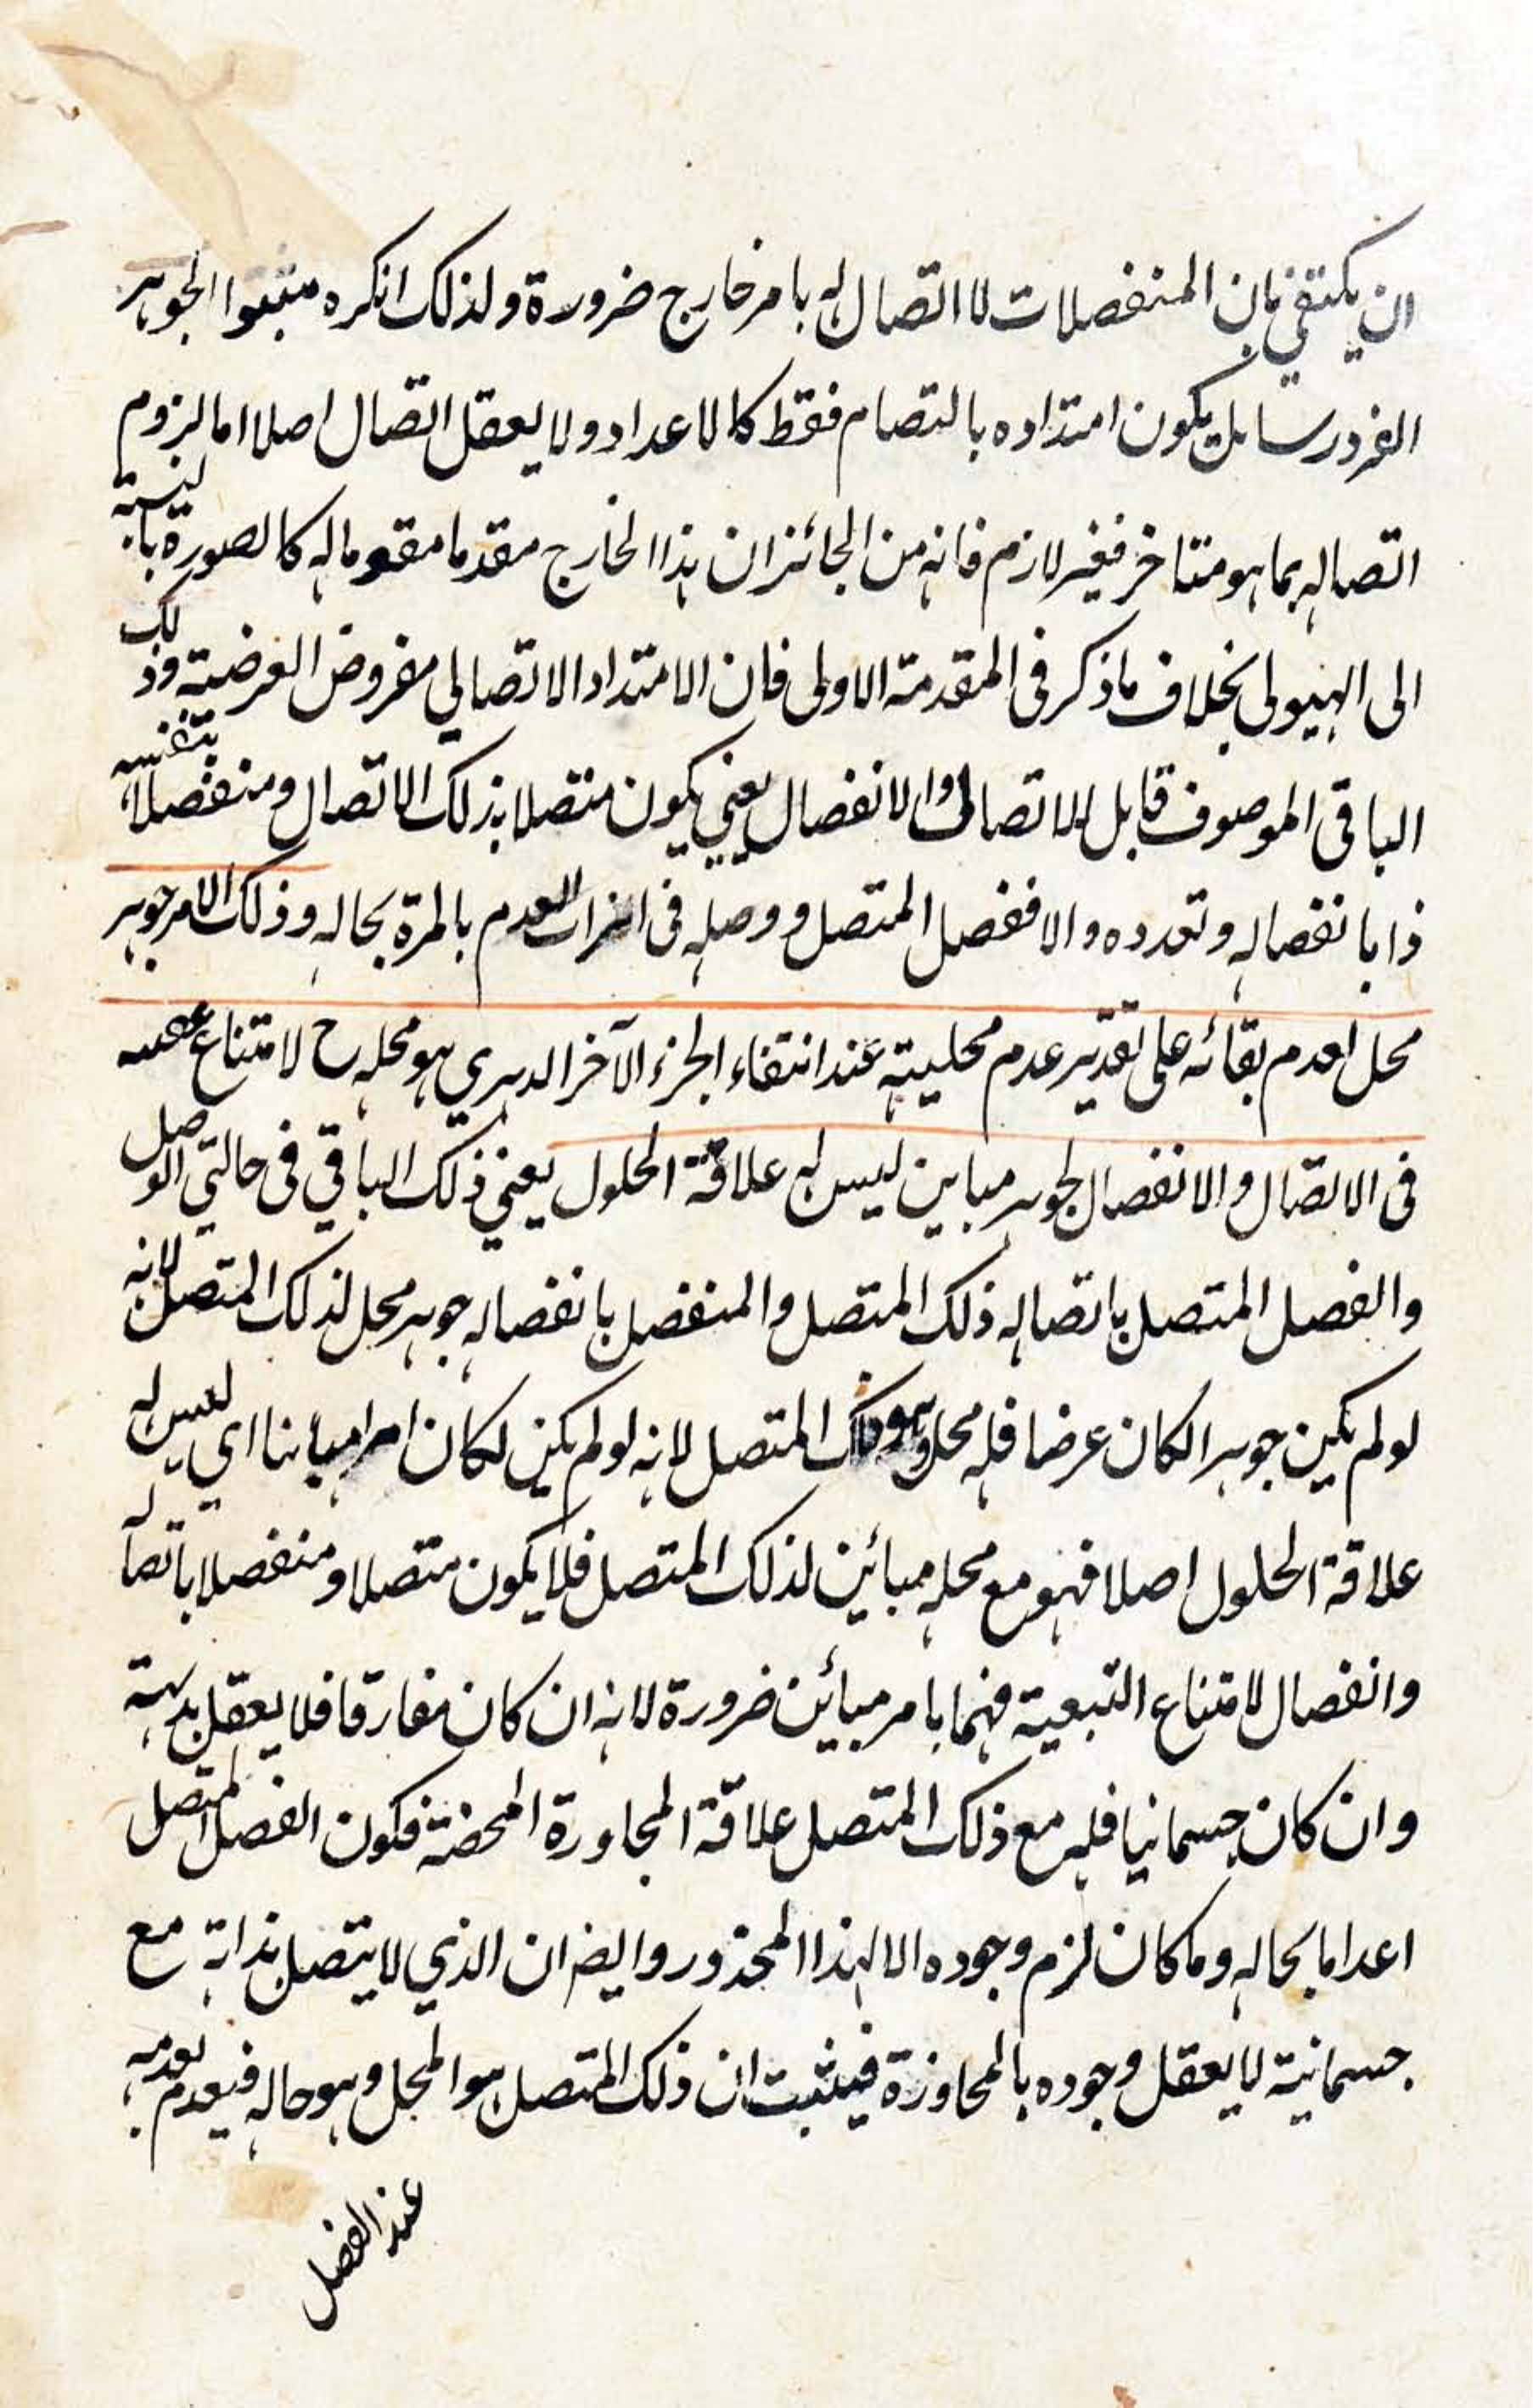 ان يكتفي بان المنفصلات لا اتصال له بامر خارج ضرورة ولذلك انكره مثبتوا الجوهر
الفرد رسا بل يكون امتداده بالتصام فقط كالاعداد ولا يعقل اتصال اصلا اما لزوم
اتصاله بما هو متاخر فغير لازم فانه من الجائز ان هذا الخارج مقدما مقوما له كالصورة بالنسبة
الى الهيولى بخلاف ما ذكر فى المقدمة الاولى فان الامتداد الاتصالي مفروض العرضية وذلك
الباقى الموصوف قابل للاتصال والانفصال يعني يكون متصلا بذلك الاتصال ومنفصلا بنفسه
ذا بانفصاله وتعدده والا ففصل المتصل ووصله فى العدم بالمرة بحاله وذلك الامر جوهر
محل لعدم بقائه على تقدير عدم محليته عند انتفاء الجزء الآخر الدهري هو محله ح لامتناع
فى الاتصال والانفصال لجوهر مباين ليس له علاقة الحلول يعني ذلك الباقي فى حالتي الوصل
والفصل المتصل باتصاله ذلك المتصل والمنفصل بانفصاله جوهر محل لذلك المتصل لانه
لو لم يكن جوهرا لكان عرضا فله محل وهو ذلك المتصل لانه لو لم يكن لكان امرا مباينا اي ليس له
علاقة الحلول اصلا فهو مع محله مبائن لذلك المتصل فلا يكون متصلا ومنفصلا باتصاله
وانفصال لامتناع التبعية فيهما بامر مبائن ضرورة لانه ان كان مفارقا فلا يعقل بديهة
وان كان جسمانيا فله مع ذلك المتصل علاقة المجاورة المحضة فكون الفصل المتصل
اعداما بحاله وما كان لزم وجوده الا لهذا المحذور وايضا ان الذي لا يتصل بذاته مع
جسمانية لا يعقل وجوده بالمحاوزة فيثبت ان ذلك المتصل هو المحل وهو حاله فيعدم بعدمه
عند الفصل